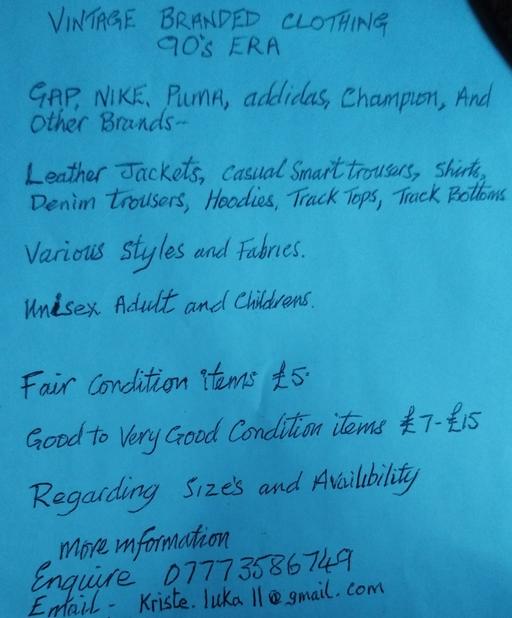 VINTAGE BRANDED CLOTHING
90's ERA
GAP, NIKE, PUMA, addidas, Champion, And
Other Brands-
Leather Jackets, Casual Smart trousers, Shirts,
Denim trousers, Hoodies, Track Tops, Track Bottoms
Various Styles and Fabrics.
Unisex Adult and Childrens.
Fair Condition items £5.
Good to Very Good Condition items £7-£15
Regarding Size's and Availibility
More information
Enquire 07773586749
Email - Kriste.luka11@gmail.com